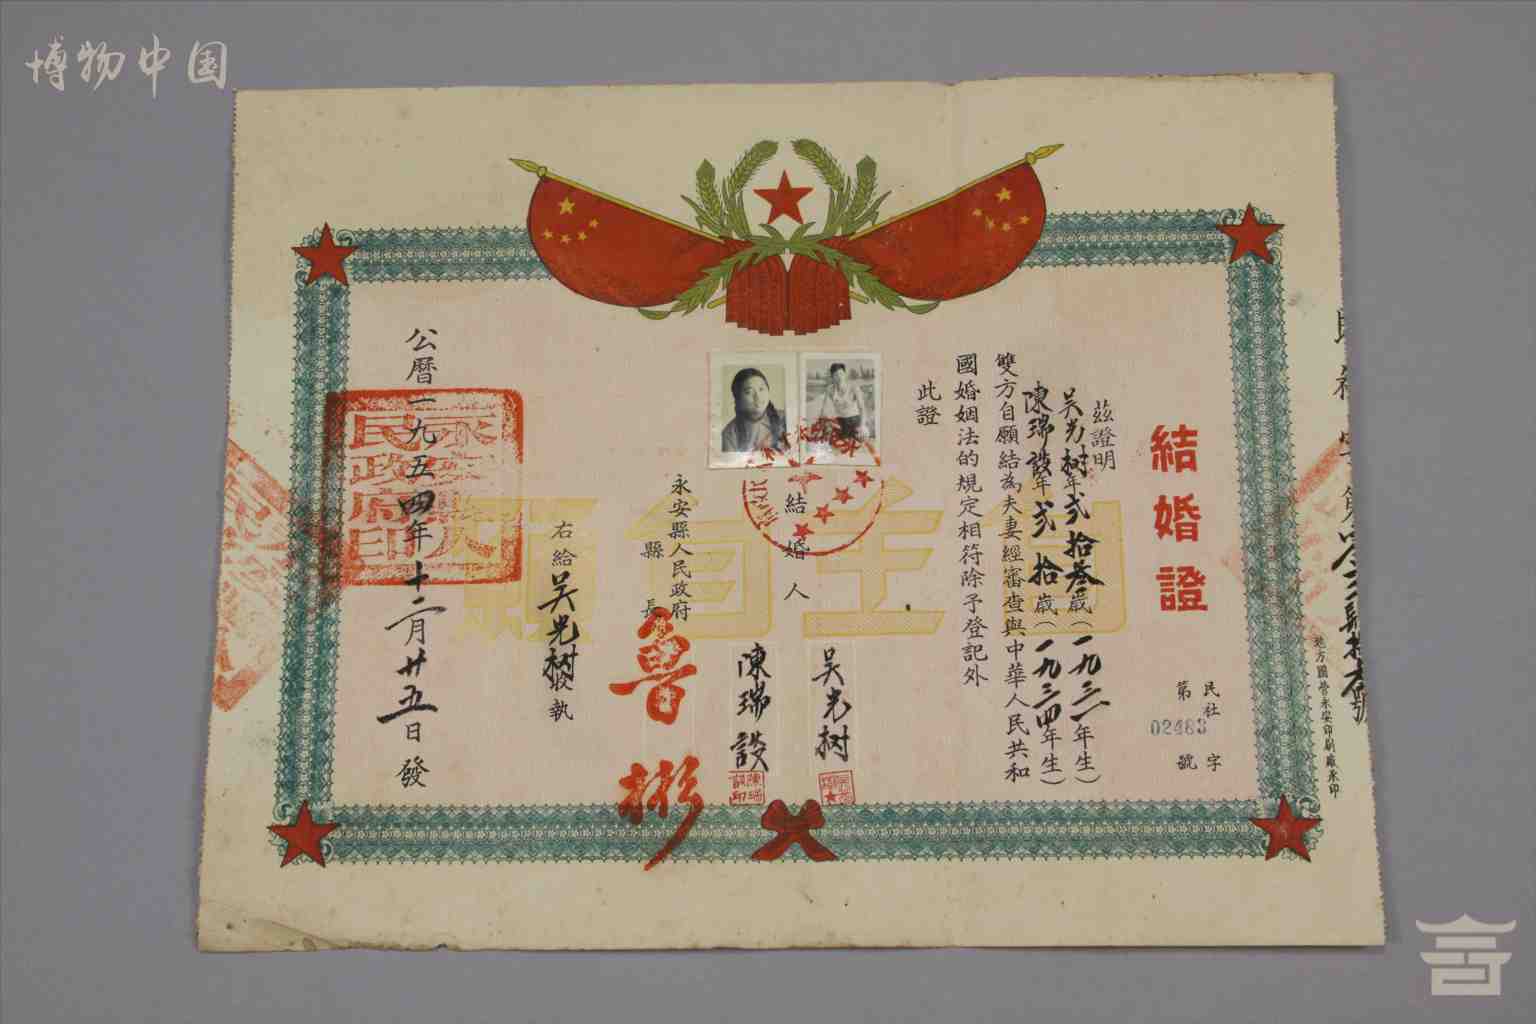 博物中国
結婚證
民社 字
第 02483 號
茲證明
吴光树年弍拾叁歲(一九三一年生)
陳瑞設年弍拾歲(一九三四年生)
雙方自願結為夫妻經審查與中華人民共和
國婚姻法的規定相符除予登記外
此證
結婚人
吴光树
陳瑞設
永安縣人民政府
縣長
魯彬
右給吴光树收執
公曆一九五四年十二月廿五日發
自主自願
永安縣人民政府印
地方國營永安印刷廠承印